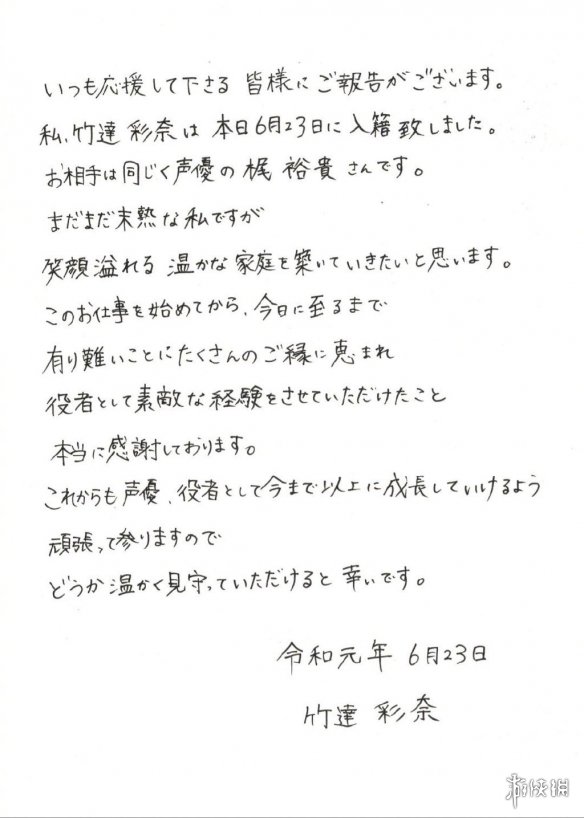 いつも応援して下さる 皆様にご報告がございます。
私、竹達 彩奈は 本日6月23日に入籍致しました。
お相手は同じく声優の 梶 裕貴 さんです。
まだまだ未熟な私ですが
笑顔溢れる 温かな家庭を築いていきたいと思います。
このお仕事を始めてから、今日に至るまで
有り難いことにたくさんのご縁に恵まれ
役者として素敵な経験をさせていただけたこと
本当に感謝しております。
これからも声優、役者として今まで以上に成長していけるよう
頑張って参りますので
どうか温かく見守っていただけると 幸いです。
令和元年 6月23日
竹達 彩奈
游侠网